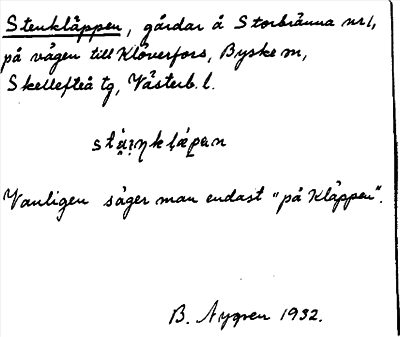 Stenkläppen, gårdar å Storbränna nr 1,
på vägen till Klöverfors, Byske m,
Skellefteå tg, Västerb. l.
Vanligen säger man endast "på Kläppen".
B. Nygren 1932.